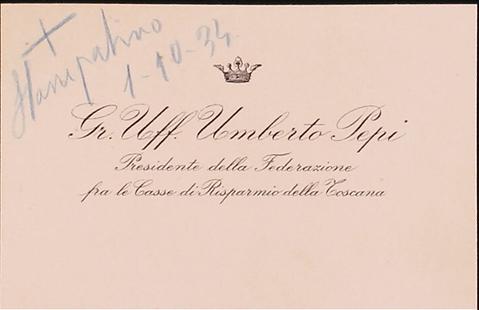 Stampatino
1-10-34.
Gr. Uff. Umberto Pepi
Presidente della Federazione
fra le Casse di Risparmio della Toscana